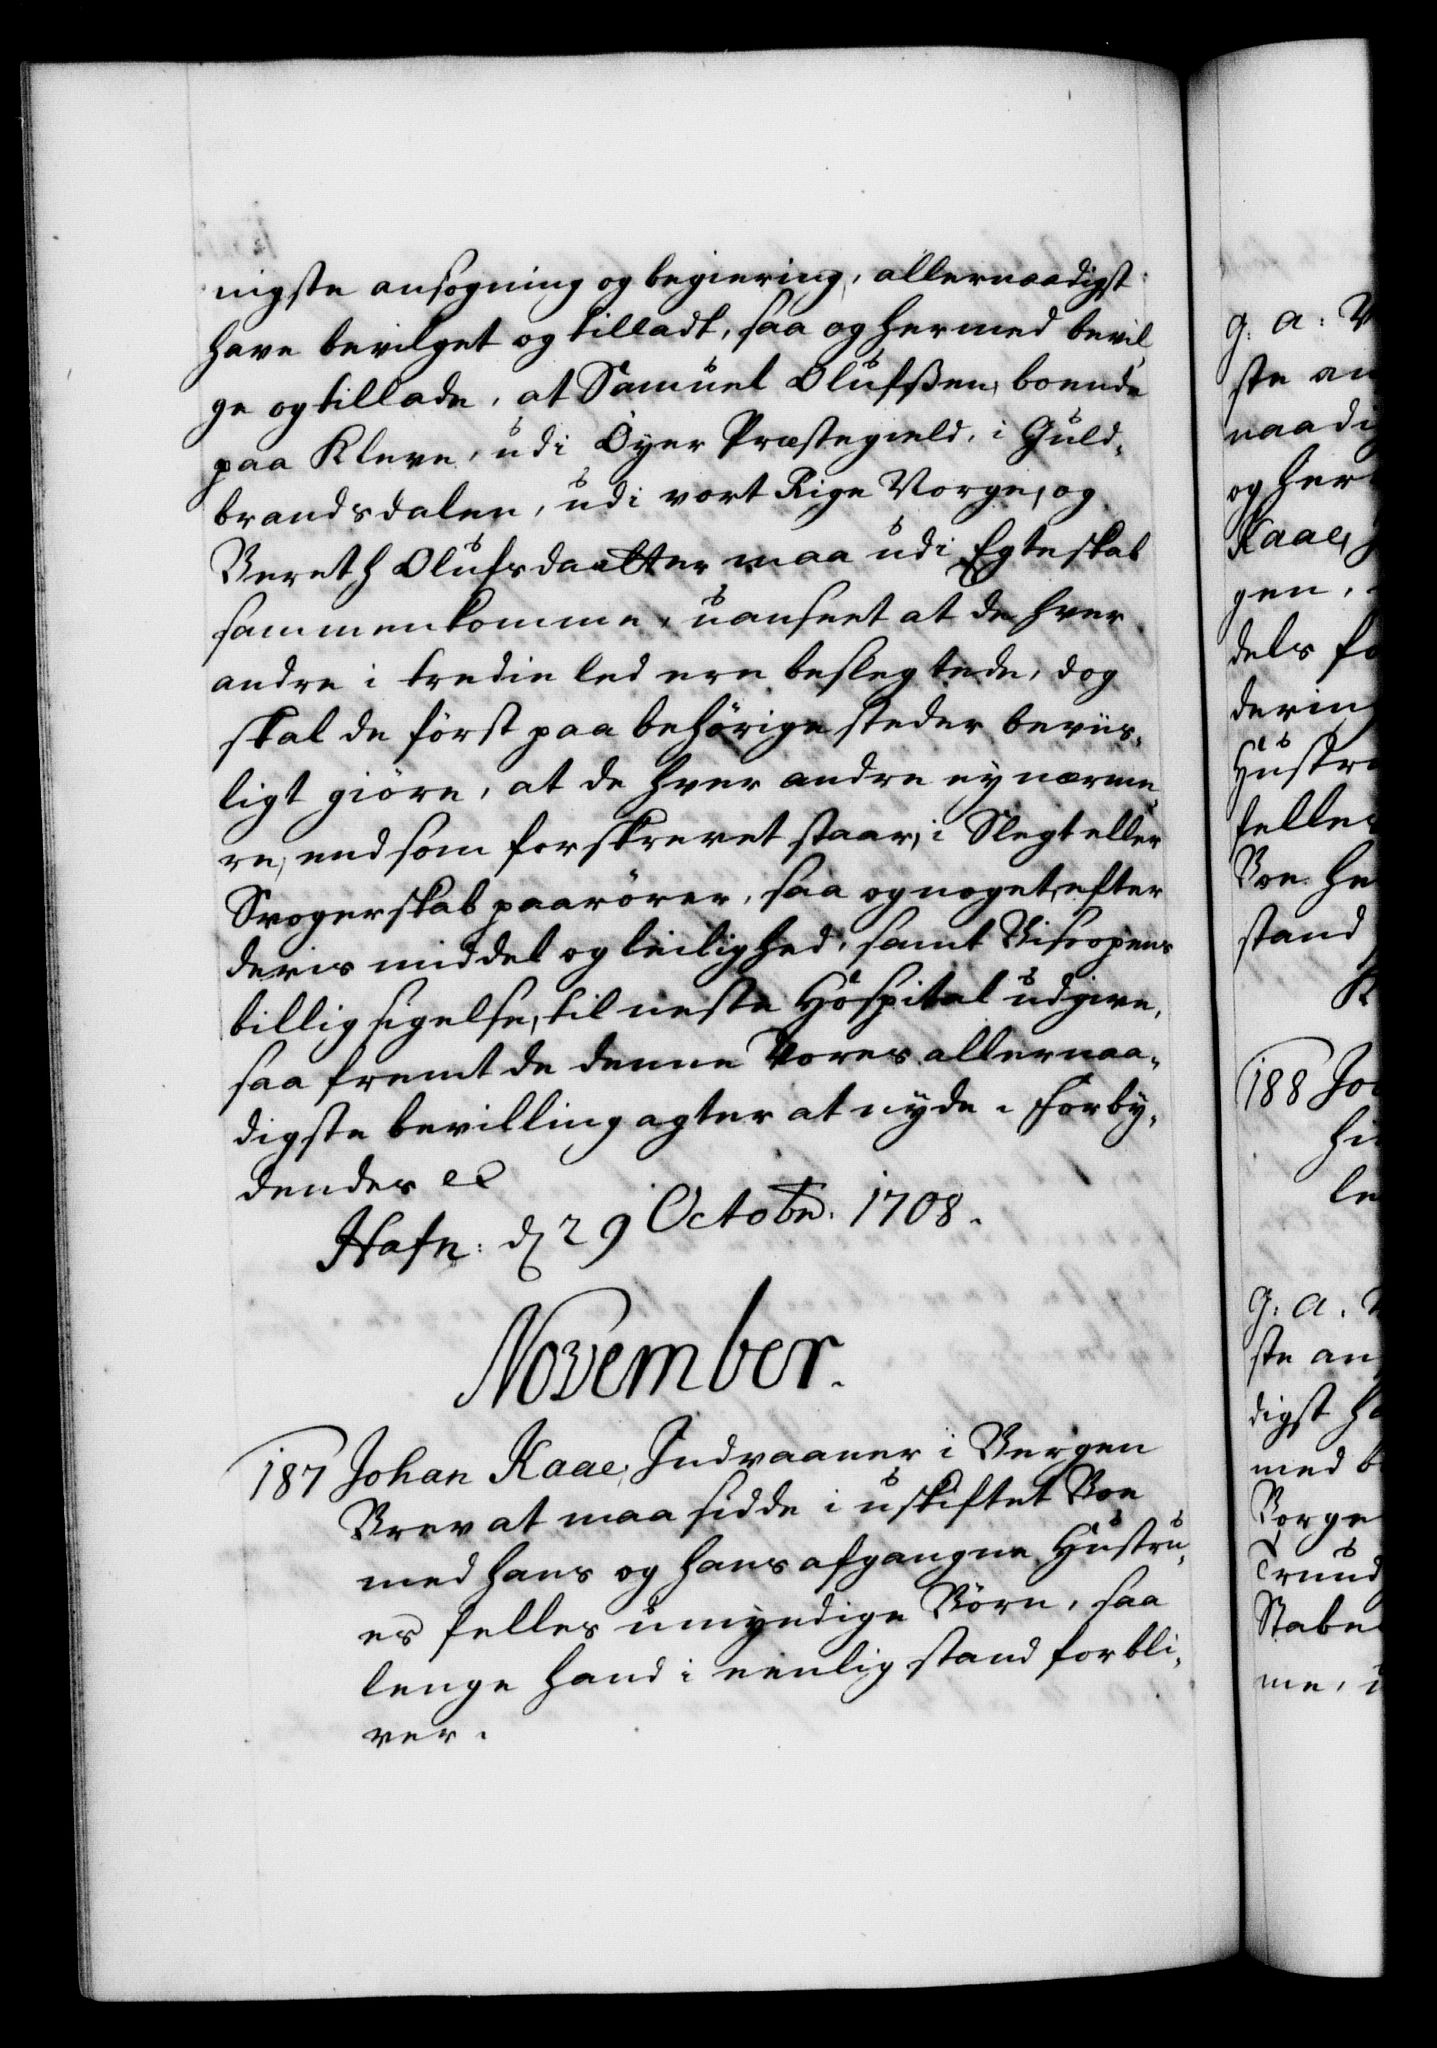 nigste ansøgning og begiering, allernaadigst
have bevilget og tilladt, saa og hermed bevil-
ge og tillade, at Samuel Olufsßen, boende
paa Kleve, udi Öyer Præstegield, i Guld-
brandsdalen, udi vort Rige Norge, og
Bereth Olufsdaatter maa udi Egteskab
sammenkomme, uanseet at de hver
andre i tredie led ere beslegtede, dog
skal de först paa behörige steder beviis-
ligt giöre, at de hver andre ey nærme-
re, end som forskrevet staar, i Slegt eller
Svogerskab paarörer, saa og noget, efter
deris middel og leilighed, samt Biscopens
billig sigelse, til neste Hospital udgive,
saa fremt de denne Vores allernaa-
digste bevilling agter at nyde. Forby-
dendes etc
Hafn: d 29 Octobr. 1708.
November.
187 Johan Kaae, Indvaaner i Bergen
Brev at maa sidde i uskiftet Boe
med hans og hans afgangne Hustru-
es felles umyndige Börn, saa
lenge hand i eenlig stand forbli-
ver.
g. a. V
ste an
naadi
og her
Kaae,
gen,
dels fo
dering
Hustru
felles
Boe he
stand
K
188 Jo
hi
le
g. a.
ste an
digst ha
med b
Borge
Trund
Stabe
me, i